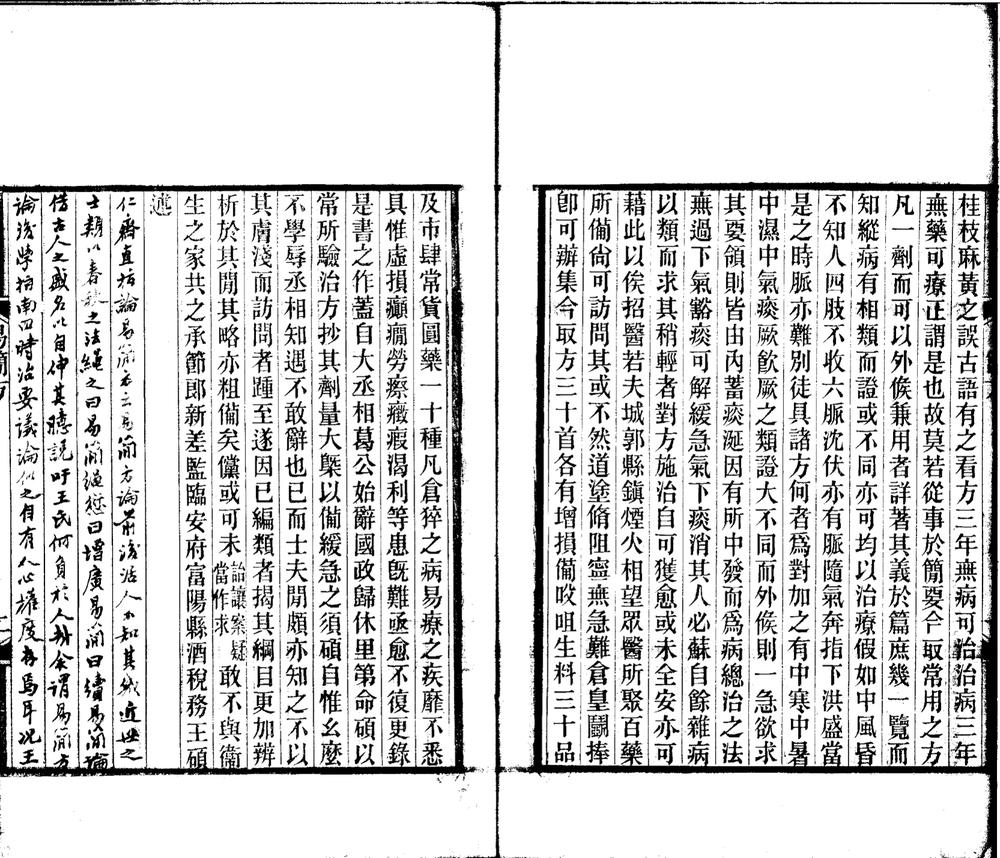 桂枝麻黃之誤古語有之看方三年無病可治治病三年
無藥可療正謂是也故莫若從事於簡要合取常用之方
凡一劑而可以外候兼用者詳著其義於篇庶幾一覽而
知縱病有相類而證或不同亦可均以治療假如中風昏
不知人四肢不收六脈沈伏亦有脈隨氣奔指下洪盛當
是之時脈亦難別徒具諸方何者爲對加之有中寒中暑
中濕中氣痰厥飮厥之類證大不同而外候則一急欲求
其要領則皆由內蓄痰涎因有所中發而爲病總治之法
無過下氣豁痰可解緩急氣下痰消其人必蘇自餘雜病
以類而求其稍輕者對方施治自可獲愈或未全安亦可
藉此以俟招醫若夫城郭縣鎭煙火相望眾醫所聚百藥
所備尙可訪問其或不然道塗脩阻寧無急難倉皇鬭捧
卽可辦集今取方三十首各有增損備㕮咀生料三十品
及市肆常貨圓藥一十種凡倉猝之病易療之疾靡不悉
具惟虛損癲癇勞瘵癥瘕渴利等患旣難亟愈不復更錄
是書之作蓋自大丞相葛公始辭國政歸休里第命碩以
常所驗治方抄其劑量大槩以備緩急之須碩自惟幺麼
不學辱丞相知遇不敢辭也已而士夫閒頗亦知之不以
其膚淺而訪問者踵至遂因已編類者揭其綱目更加辨
析於其閒其略亦粗備矣儻或可未詒讓案疑當作求敢不與衞
生之家共之承節郎新差監臨安府富陽縣酒稅務王碩
述
仁齋直指論易簡方云易簡方論前後活人不知其幾近世之
士類以春秋之法繩之曰易簡繩愆曰增廣易簡曰續易簡論
借古人之盛名以自伸其臆說吁王氏何負於人哉余謂易簡方
論後學指南四時治要議論似之自有人心權度存焉耳況王
易簡方